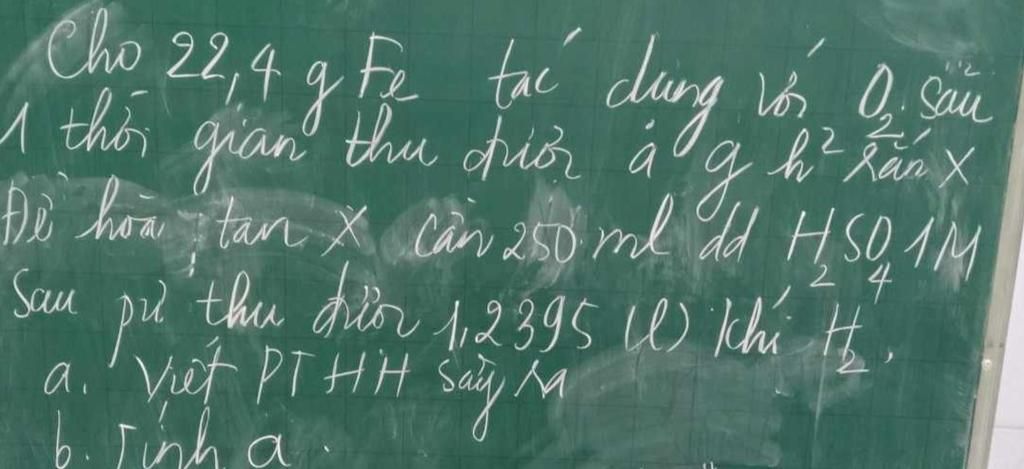 Cho 22,4 g Fe tác dụng với O₂. sau
1 thời gian thu được a g h² rắn X
Để hòa tan X cần 250 ml dd H₂SO₄ 1M
Sau pứ thu được 1,2395 (l) khí H₂.
a. Viết PTHH sảy ra
b. Tính a.